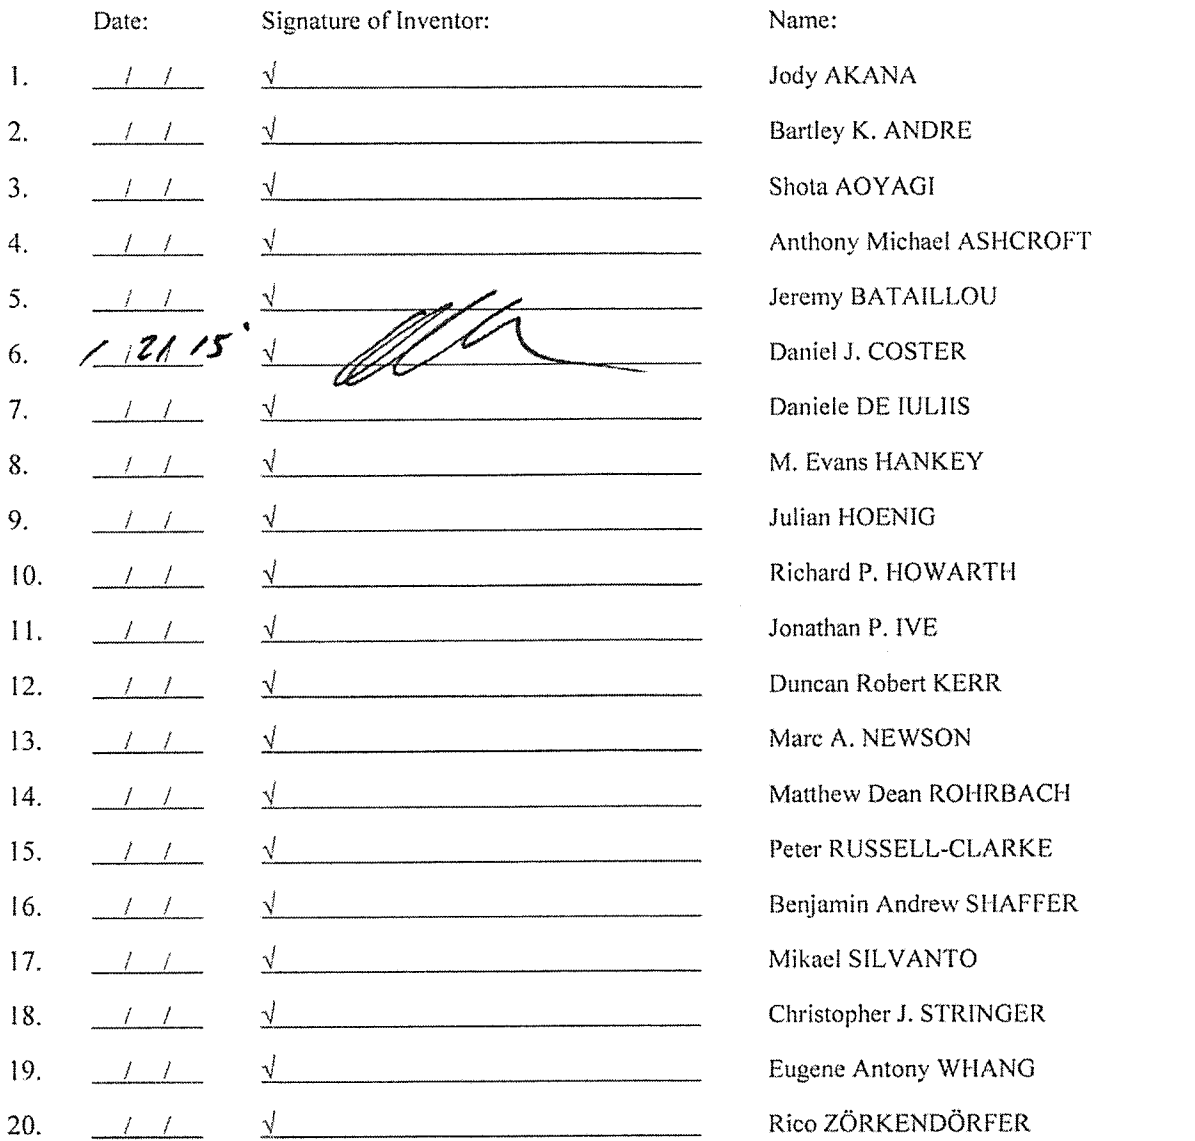 Date: Signature of Inventor: Name:
1. / / √ Jody AKANA
2. / / √ Bartley K. ANDRE
3. / / √ Shota AOYAGI
4. / / √ Anthony Michael ASHCROFT
5. / / √ Jeremy BATAILLOU
6. 1 / 21 / 15 √ Daniel J. COSTER
7. / / √ Daniele DE IULIIS
8. / / √ M. Evans HANKEY
9. / / √ Julian HOENIG
10. / / √ Richard P. HOWARTH
11. / / √ Jonathan P. IVE
12. / / √ Duncan Robert KERR
13. / / √ Marc A. NEWSON
14. / / √ Matthew Dean ROHRBACH
15. / / √ Peter RUSSELL-CLARKE
16. / / √ Benjamin Andrew SHAFFER
17. / / √ Mikael SILVANTO
18. / / √ Christopher J. STRINGER
19. / / √ Eugene Antony WHANG
20. / / √ Rico ZÖRKENDÖRFER